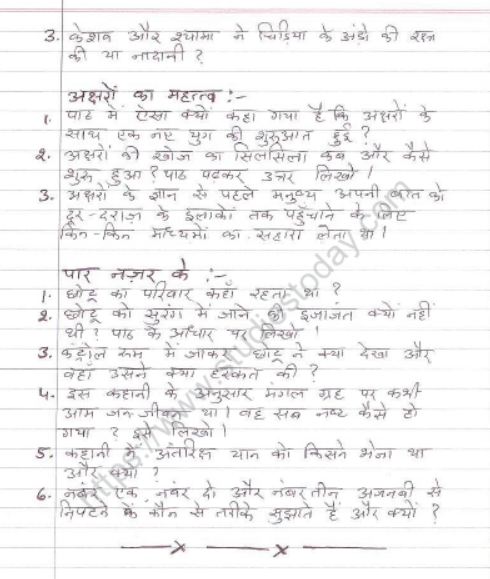 3. केशव और श्यामा ने चिड़िया के अंडो की रक्षा
की या नादानी ?
अक्षरों का महत्त्व :-
1. पाठ में ऐसा क्यों कहा गया है कि अक्षरों के
साथ एक नए युग की शुरुआत हुई ?
2. अक्षरों की खोज का सिलसिला कब और कैसे
शुरू हुआ ? पाठ पढ़कर उत्तर लिखो ।
3. अक्षरों के ज्ञान से पहले मनुष्य अपनी बात को
दूर-दराज़ के इलाकों तक पहुँचाने के लिए
किन-किन माध्यमों का सहारा लेता था ।
पार नज़र के :-
1. छोटू का परिवार कहाँ रहता था ?
2. छोटू को सुरंग में जाने की इजाजत क्यों नहीं
थी ? पाठ के आधार पर लिखो ।
3. कंट्रोल रूम में जाकर छोटू ने क्या देखा और
वहाँ उसने क्या हरकत की ?
4. इस कहानी के अनुसार मंगल ग्रह पर कभी
आम जन-जीवन था । वह सब नष्ट कैसे हो
गया ? इसे लिखो ।
5. कहानी में अंतरिक्ष यान को किसने भेजा था
और क्यों ?
6. नंबर एक, नंबर दो और नंबर तीन अजनबी से
निपटने के कौन से तरीके सुझाते हैं और क्यों ?
https://www.studiestoday.com